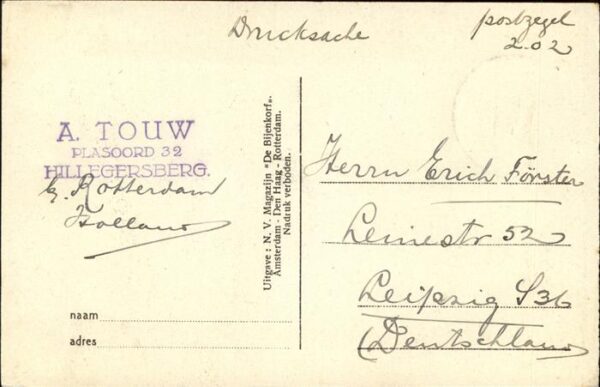 Drucksache
postzegel
2.02
A. TOUW
PLASOORD 32
HILLEGERSBERG.
b/ Rotterdam
Holland
Uitgave: N. V. Magazijn "De Bijenkorf".
Amsterdam - Den Haag - Rotterdam.
Nadruk verboden.
naam
adres
Herrn Erich Förster
Leinestr 52
Leipzig S36
(Deutschland